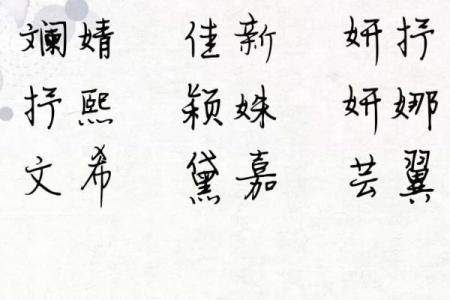 斓婧 佳新 妍抒
抒熙 颖姝 妍娜
文希 黛嘉 芸翼